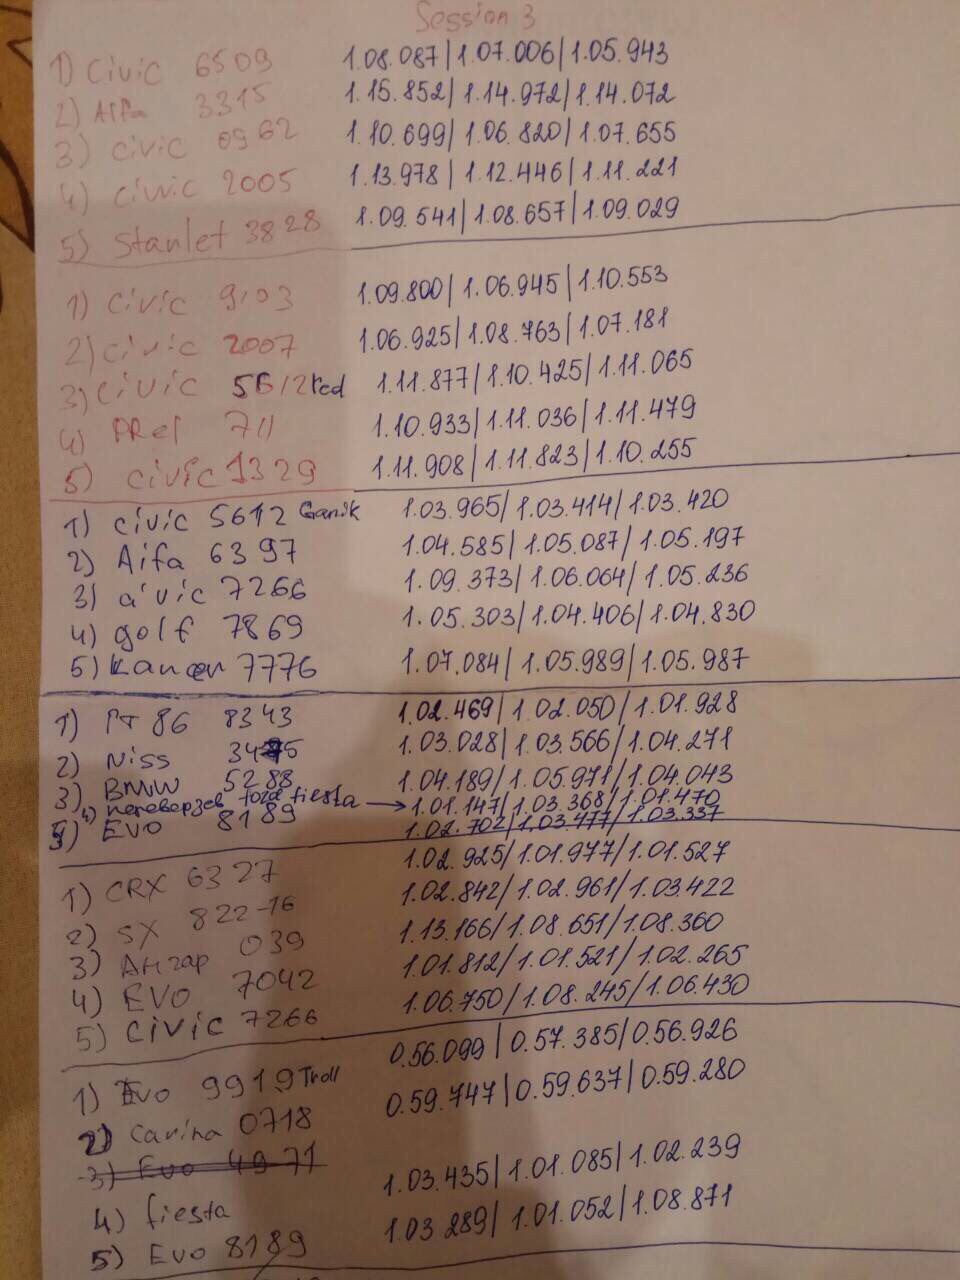 Session 3
1) Civic 6509 1.08.087 | 1.07.006 | 1.05.943
2) Alfa 3315 1.15.852 | 1.14.972 | 1.14.072
3) Civic 0962 1.10.699 | 1.06.820 | 1.07.655
4) Civic 2005 1.13.978 | 1.12.446 | 1.11.221
5) Starlet 3828 1.09.541 | 1.08.657 | 1.09.029
1) Civic 9103 1.09.800 | 1.06.945 | 1.10.553
2) Civic 2007 1.06.925 | 1.08.763 | 1.07.181
3) Civic 5612 red 1.11.877 | 1.10.425 | 1.11.065
4) PRel 711 1.10.933 | 1.11.036 | 1.11.479
5) Civic 1329 1.11.908 | 1.11.823 | 1.10.255
1) Civic 5612 Ganik 1.03.965 | 1.03.414 | 1.03.420
2) Alfa 6397 1.04.585 | 1.05.087 | 1.05.197
3) Civic 7266 1.09.373 | 1.06.064 | 1.05.236
4) golf 7869 1.05.303 | 1.04.406 | 1.04.830
5) Lancer 7776 1.07.084 | 1.05.989 | 1.05.987
1) 86 8343 1.02.469 | 1.02.050 | 1.01.928
2) Niss 1.03.028 | 1.03.566 | 1.04.271
3) BMW 5288 1.04.189 | 1.05.971 | 1.04.043
4) переверзев ford fiesta → 1.01.147 | 1.03.368 | 1.01.470
5) EVO 8189 1.02.702 | 1.03.477 | 1.03.337
1) CRX 6327 1.02.925 | 1.01.977 | 1.01.527
2) SX 822-16 1.02.842 | 1.02.961 | 1.03.422
3) Ангар 039 1.13.166 | 1.08.651 | 1.08.360
4) EVO 7042 1.01.812 | 1.01.521 | 1.02.265
5) Civic 7266 1.06.750 | 1.08.245 | 1.06.430
1) Evo 9919 Troll 0.56.099 | 0.57.385 | 0.56.926
2) Carina 0718 0.59.747 | 0.59.637 | 0.59.280
3) Evo 4971
4) fiesta 1.03.435 | 1.01.085 | 1.02.239
5) Evo 8189 1.03.289 | 1.01.052 | 1.08.871